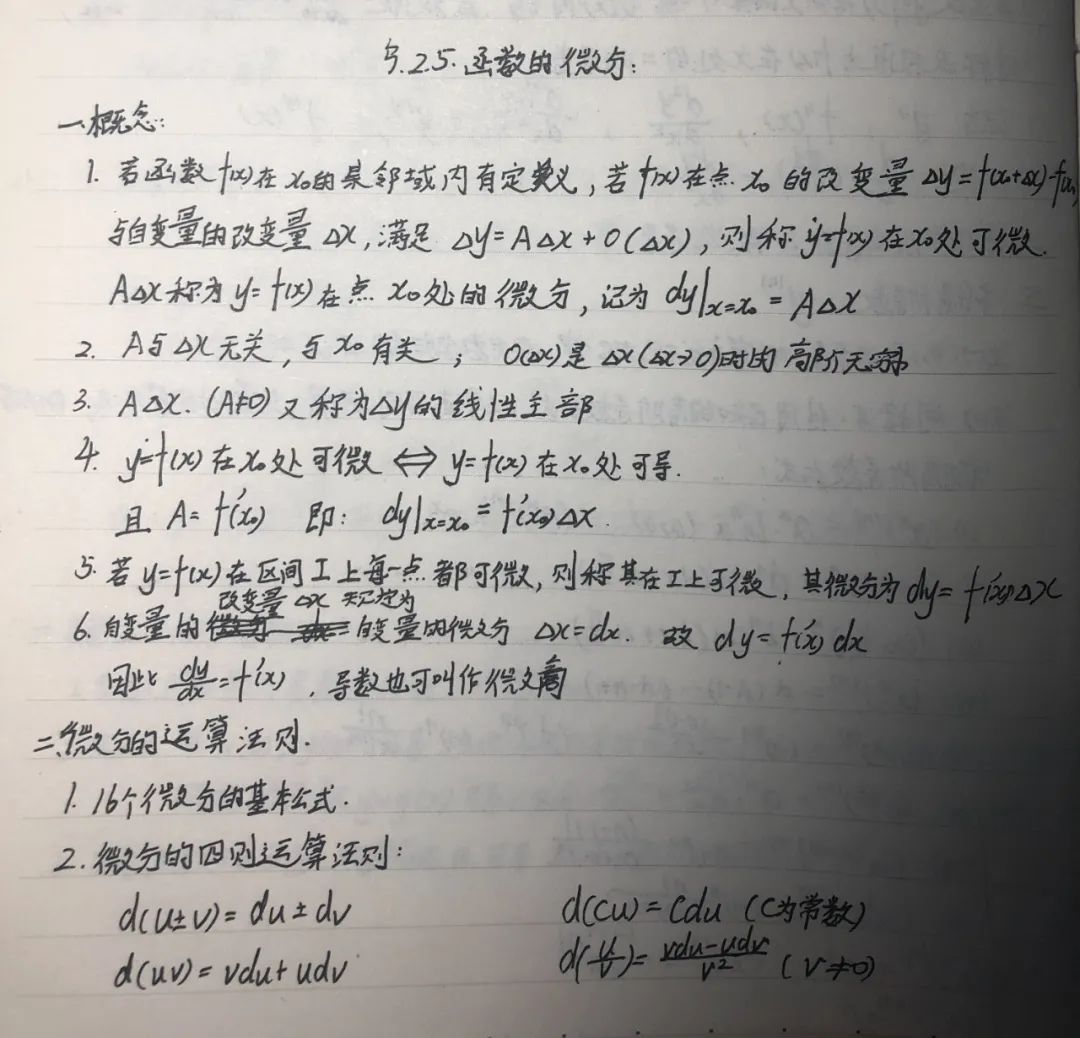 §.2.5.函数的微分:
一.概念:
1. 若函数f(x)在x₀的某邻域内有定义,若f(x)在点x₀的改变量Δy=f(x₀+Δx)-f(x₀)
与自变量的改变量Δx,满足 Δy=AΔx+o(Δx),则称y=f(x)在x₀处可微.
AΔx称为y=f(x)在点x₀处的微分,记为 dy|x=x₀ = AΔx
2. A与Δx无关,与x₀有关; o(Δx)是Δx(Δx→0)时的高阶无穷小
3. AΔx.(A≠0)又称为Δy的线性主部
4. y=f(x)在x₀处可微 ⇔ y=f(x)在x₀处可导.
且 A=f'(x₀) 即: dy|x=x₀ = f'(x₀)Δx.
5. 若y=f(x)在区间I上每一点都可微,则称其在I上可微,其微分为dy=f'(x)Δx
改变量 Δx 规定为
6. 自变量的 自变量的微分 Δx=dx. 故 dy=f'(x)dx
因此 dy/dx=f'(x),导数也可叫作微商
二.微分的运算法则.
1. 16个微分的基本公式.
2. 微分的四则运算法则:
d(u±v)=du±dv d(cu)=cdu (C为常数)
d(uv)=vdu+udv d(u/v)=(vdu-udv)/v² (v≠0)